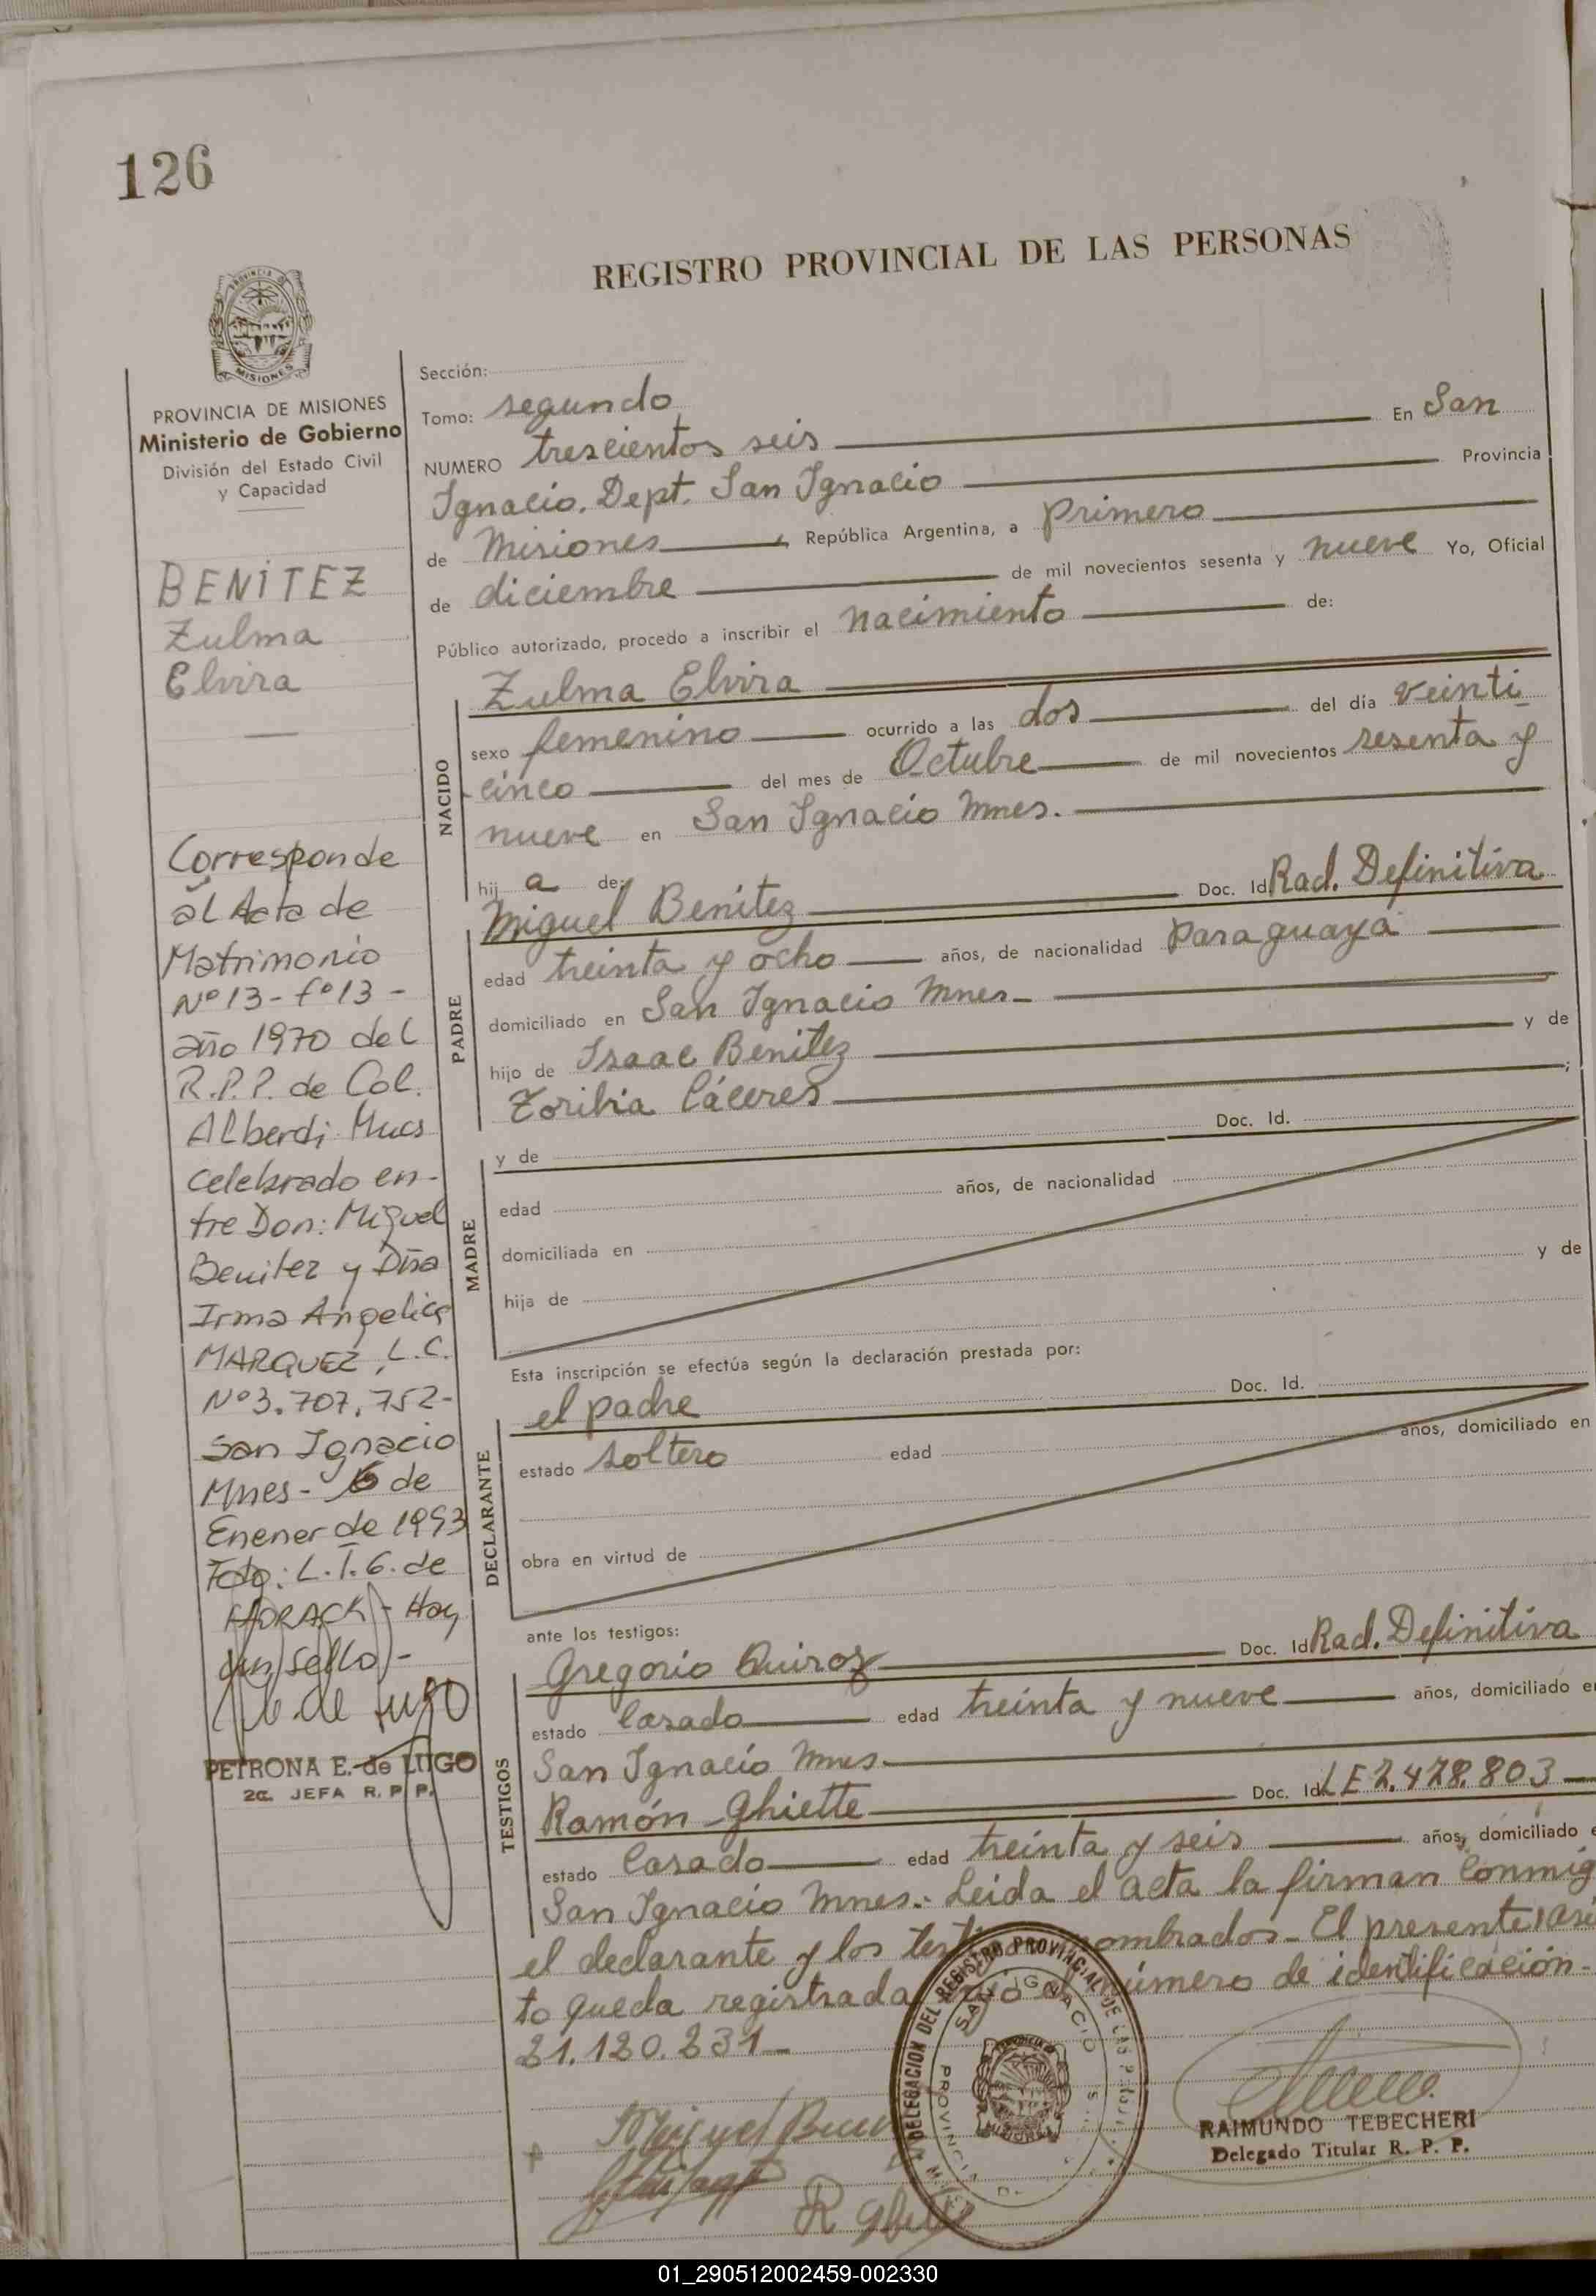 126
REGISTRO PROVINCIAL DE LAS PERSONAS
PROVINCIA DE MISIONES
Ministerio de Gobierno
División del Estado Civil
y Capacidad
BENITEZ
Zulma
Elvira
Corresponde
al Acta de
Matrimonio
Nº 13 - fº 13 -
año 1970 del
R.P.P. de Col.
Alberdi Mnes
celebrado en-
tre Don: Miguel
Benitez y Dña
Irma Angelica
MARQUEZ, L.C.
Nº 3.707.752-
San Ignacio
Mnes - 6 de
Enener de 1993
Fdo: L.T.G. de
HORACK - Hay
un sello -
de Lugo
PETRONA E. de LUGO
2a. JEFA R. P. P.
Sección:
Tomo: segundo
NUMERO trescientos seis En San
Ignacio. Dept. San Ignacio Provincia
de Misiones, República Argentina, a primero
de diciembre de mil novecientos sesenta y nueve Yo, Oficial
Público autorizado, procedo a inscribir el nacimiento de:
NACIDO
Zulma Elvira
sexo femenino ocurrido a las dos del día veinti
cinco del mes de Octubre de mil novecientos sesenta y
nueve en San Ignacio Mnes.
hij a de:
PADRE
Miguel Benitez Doc. Id. Rad. Definitiva
edad treinta y ocho años, de nacionalidad paraguaya
domiciliado en San Ignacio Mnes-
hijo de Isaac Benitez y de
Toribia Cáceres ;
MADRE
y de Doc. Id.
edad años, de nacionalidad
domiciliada en
hija de y de
Esta inscripción se efectúa según la declaración prestada por:
DECLARANTE
el padre Doc. Id.
estado soltero edad años, domiciliado en
obra en virtud de
ante los testigos:
TESTIGOS
Gregorio Quiroz Doc. Id. Rad. Definitiva
estado Casado edad treinta y nueve años, domiciliado e
San Ignacio Mnes-
Ramón Ghiette Doc. Id. LE 2.428.803
estado Casado edad treinta y seis años, domiciliado e
San Ignacio Mnes.- Leida el acta la firman Conmig
el declarante y los nombrados - El presente asi
to queda registrada número de identificación-
21.120.231-
DELEGACION DEL REGISTRO PROVINCIAL DE LAS
SAN IGNACIO
PROVINCIA
MISIONES
RAIMUNDO TEBECHERI
Delegado Titular R. P. P.
01_290512002459-002330